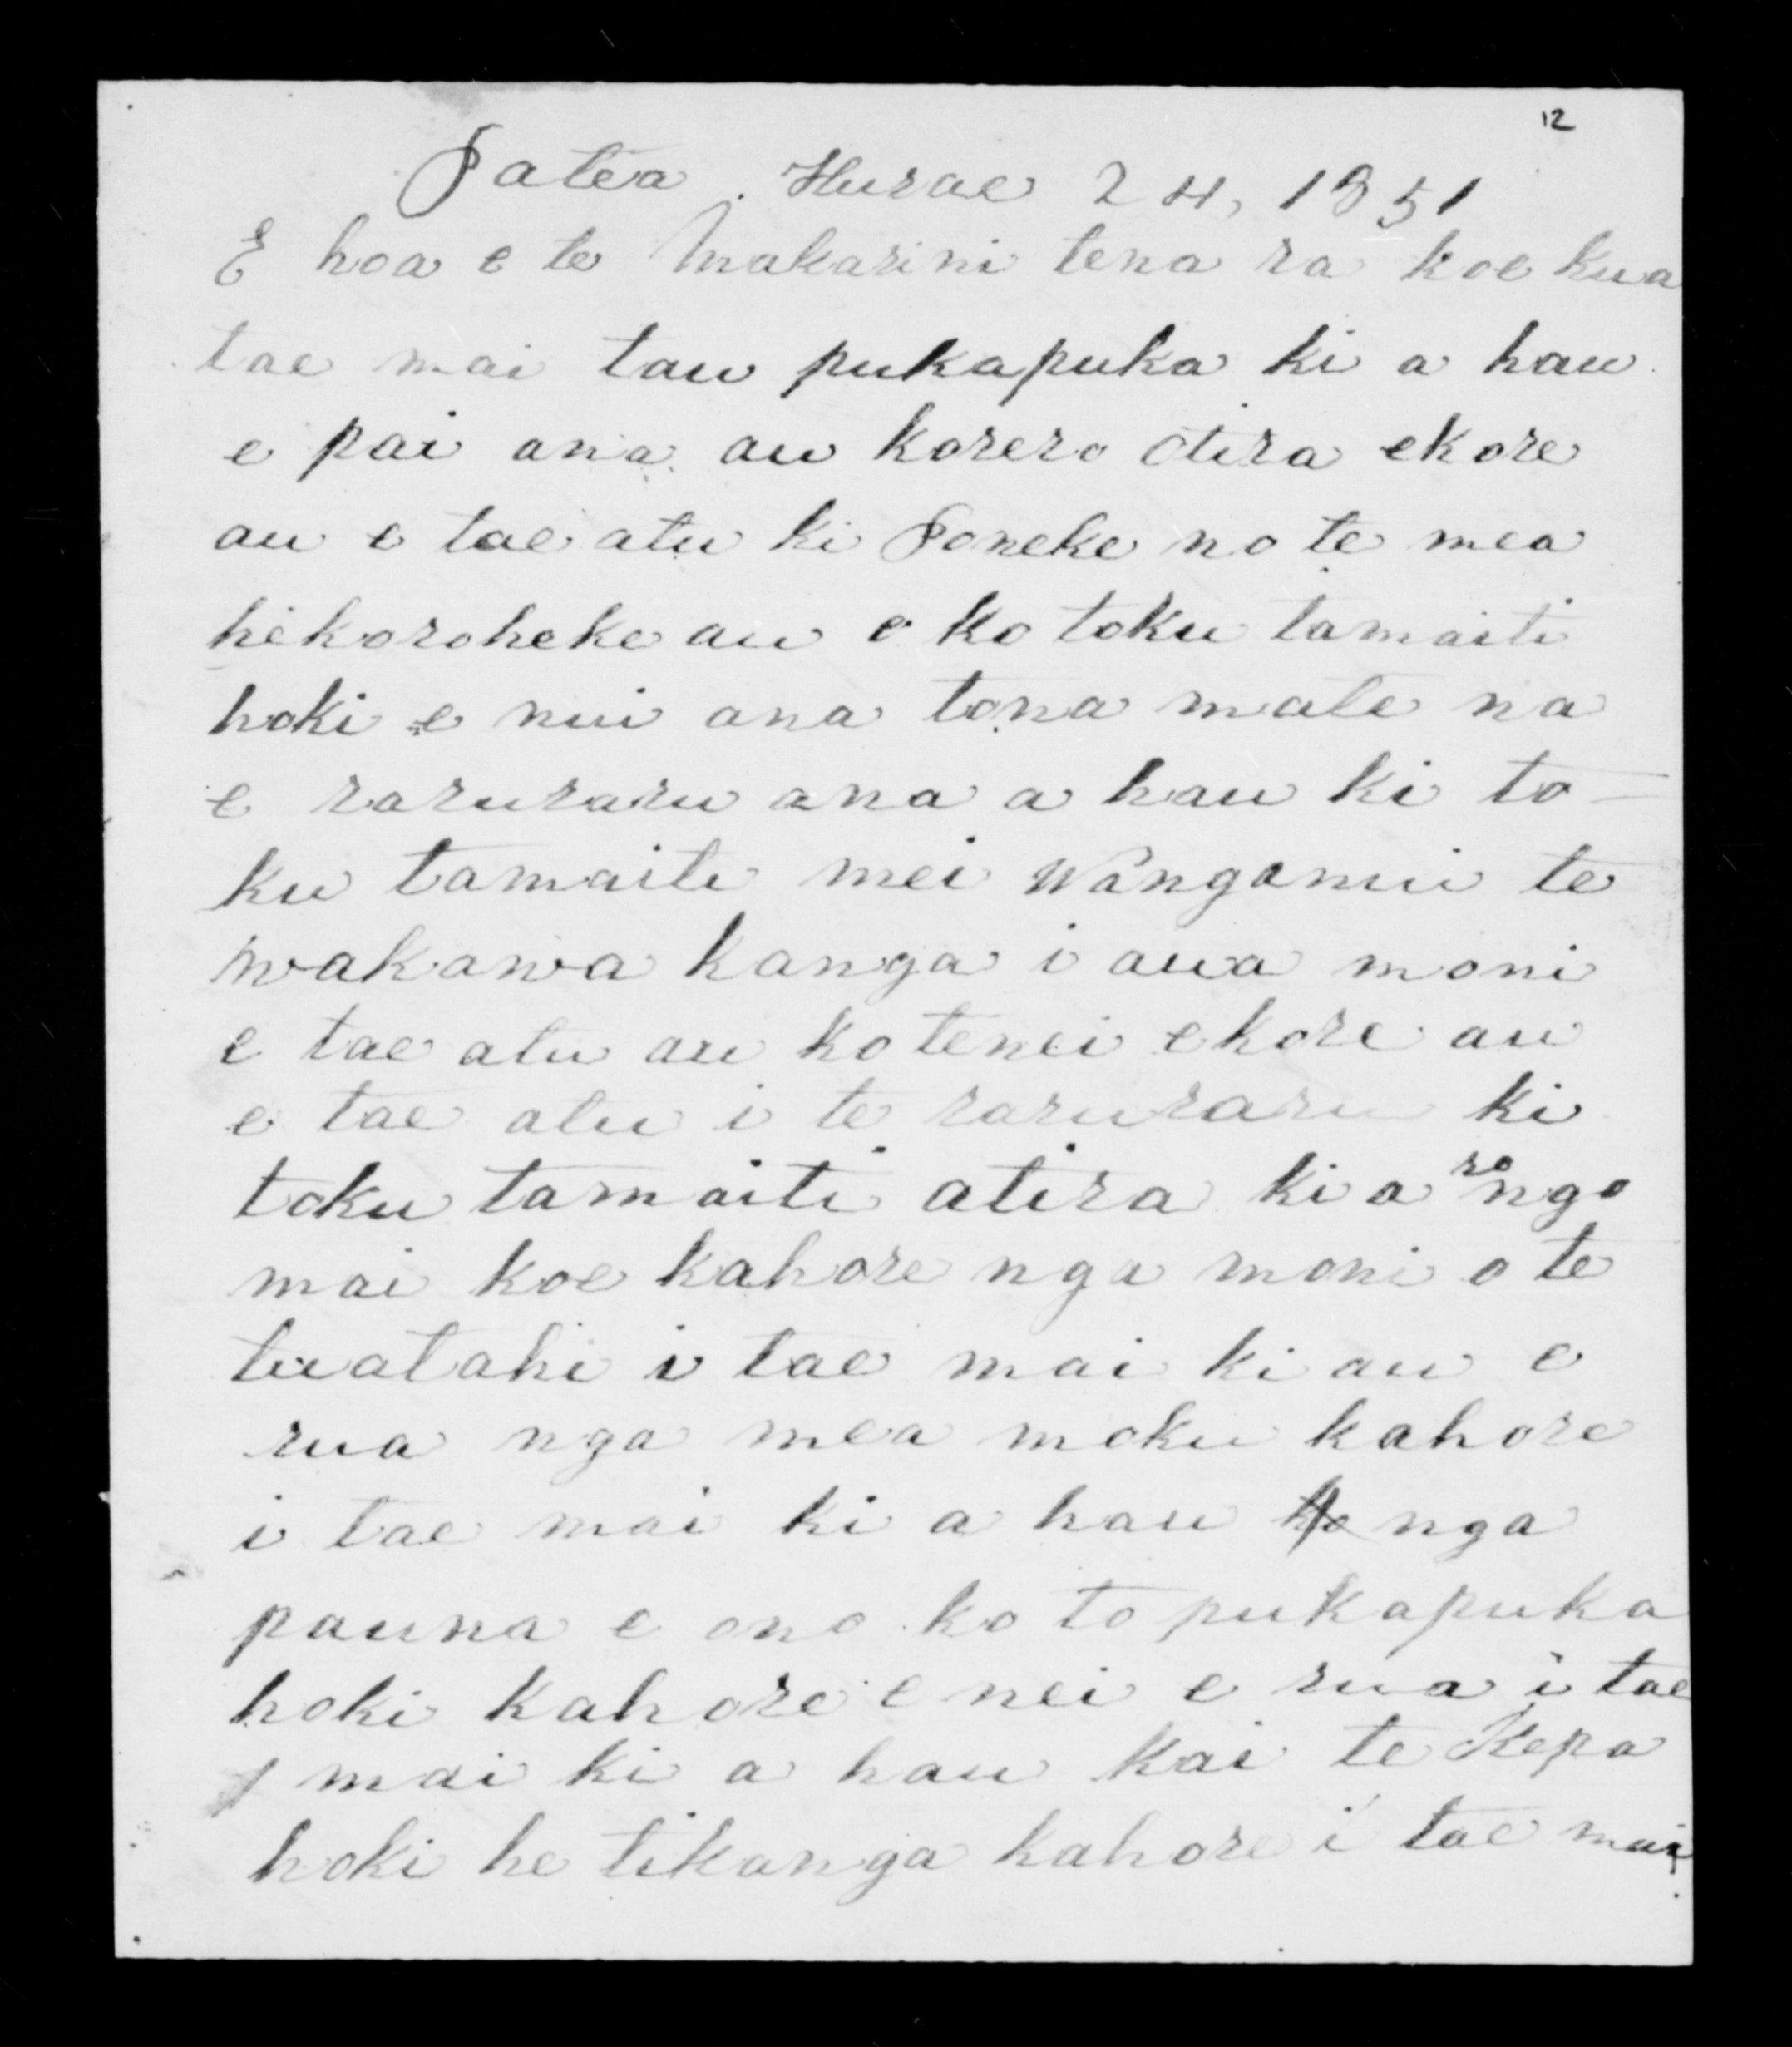 12
Patea. Hurae 24, 1851
E hoa e te Makarini tena ra koe kua
tae mai tau pukapuka ki a hau
e pai ana au korero otira ekore
au e tae atu ki Poneke no te mea
hekoroheke au e ko toku tamaiti
hoki e nui ana tona mate na
e raruraru ana a hau ki to-
ku tamaiti mei Wanganui te
wakawa kanga i aua moni
e tae atu au ko tenei ekore au
e tae atu i te raruraru ki
toku tamaiti atira ki a rongo
mai koe kahore nga moni o te
tuatahi i tae mai ki au e
rua nga mea moku kahore
i tae mai ki a hau nga
pauna e ono ko to pukapuka
hoki kahore enei e rua i tae
mai ki a hau kai te Kepa
hoki he tikanga kahore i tae mai